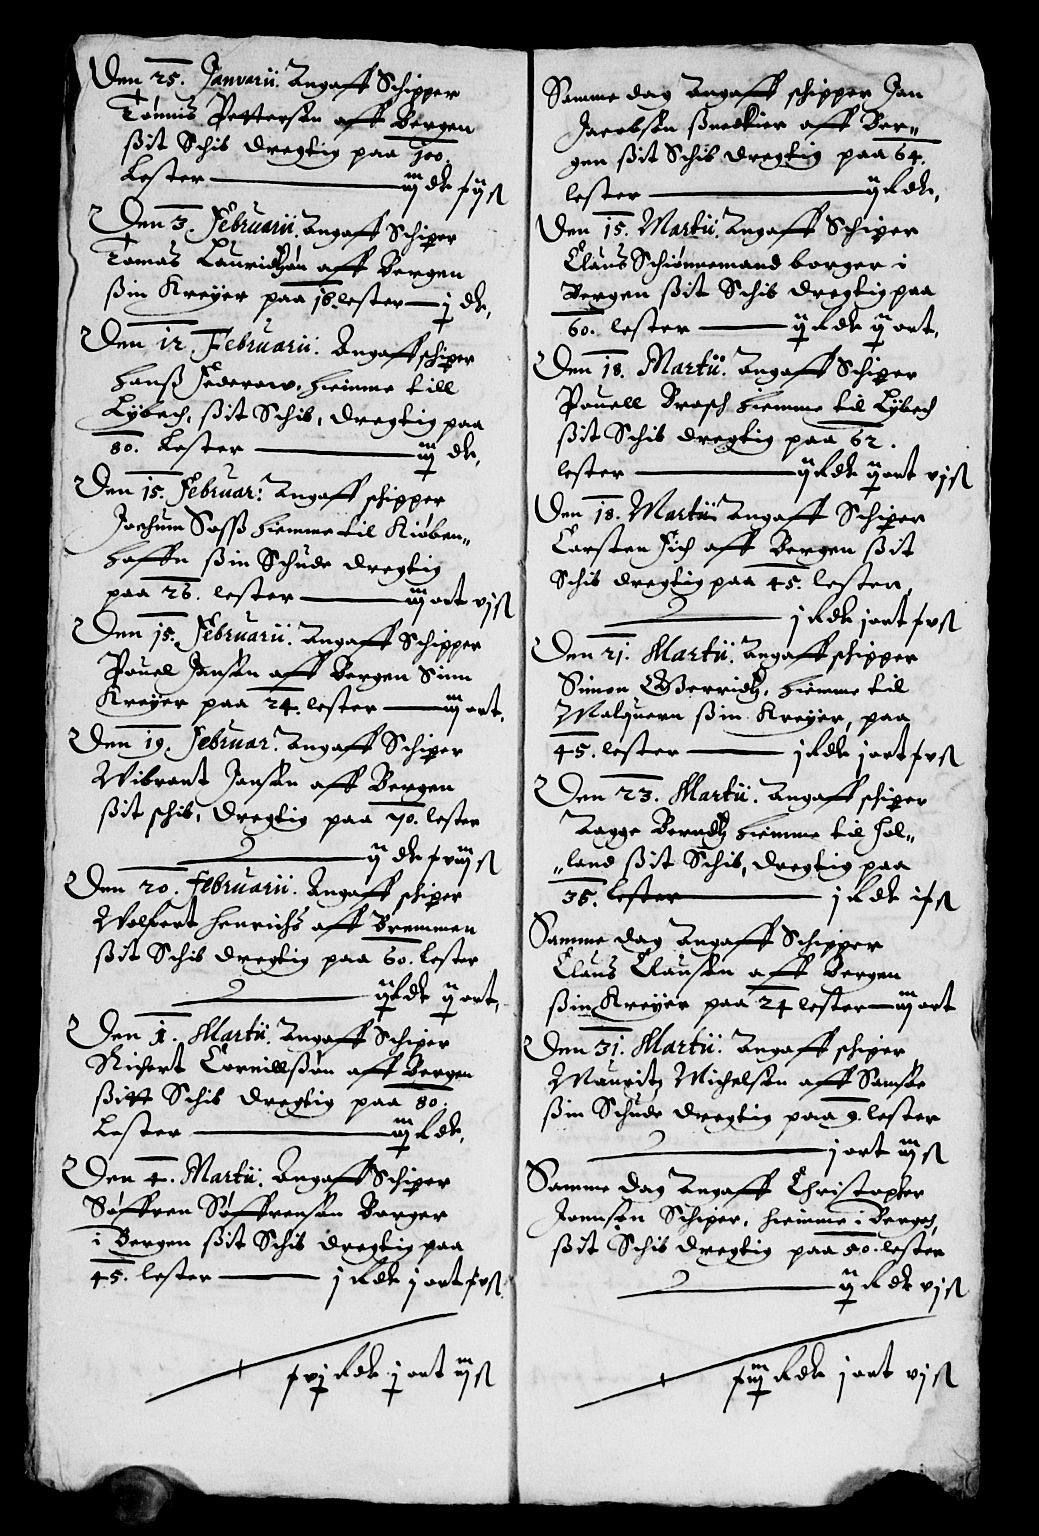 Den 25. Januarii. Angaff Schipper
Tønnis Pettersøn aff Bergen
ßit Schib dregtig paa 100.
Lester — iij dr
Den 3. Februarii. Angaff Schiper
Tomas Lauridtzøn aff Bergen
ßin Kreyer paa 16. lester — j dr,
Den 12 Februarii. Angaff schiper
Hanß Federow, hiemme till
Lybech, ßit Schib, dregtig paa
80. Lester — iij dr,
Den 15. Februar: Angaff schipper
Jochum Saß hiemme til Kiøben„
haffn ßin Schude dregtig
paa 26. lester — iij ort vj ß
Den 15. Februarii. Angaff Schipper
Pouel Jensøn aff Bergen Sinn
Kreyer paa 24. lester — iij ort.
Den 19. Februar. Angaff Schiper
Wibrant Jansøn aff Bergen
ßit schib, dregtig paa 70. lester
— ij dr xviij ß
Den 20. Februarii. Angaff schiper
Wolfert Henrichs aff Bremmen
ßit Schib dregtig paa 60. lester
— ij Rdr ij ort,
Den 1. Martii. Angaff Schiper
Richert Cornillßøn aff Bergen
ßitt Schib dregtig paa 80.
Lester — iij Rdr,
Den 4. Martii. Angaff Schiper
Søffren Søffrensøn Borger
i Bergen ßit Schib dregtig paa
45. lester — j Rdr j ort xv ß
xvj Rdr j ort iij ß
Samme dag Angaff schipper Jan
Jacobsøn ßnedkier aff Ber„
gen ßit Schib dregtig paa 64.
lester — ij Rdr,
Den 15. Martii. Angaff Schiper
Claus Schiønnemand borger i
Bergen ßit Schib dregtig paa
60. lester — ij Rdr ij ort,
Den 18. Martii. Angaff Schiper
Pouell Brasch hiemme til Lybech
ßit Schib dregtig paa 62.
lester — ij Rdr ij ort vj ß
Den 18. Martii Angaff Schiper
Carsten Fich aff Bergen ßit
Schib dregtig paa 45. lester,
— j Rdr j ort xv ß
Den 21. Martii. Angaff schipper
Simon Gerridtz, hiemme til
Malquern ßin Kreyer, paa
45. lester — j Rdr j ort xv ß
Den 23. Martii. Angaff schiper
Tagge Berndtz hiemme til Hol„
„land ßit Schib, dregtig paa
36. lester — j Rdr
Samme dag Angaff Schipper
Claus Clausøn aff Bergen
ßin Kreyer paa 24 lester — iij ort
Den 31. Martii. Angaff schiper
Mauritz Michelsøn aff Samsøe
ßin Schude dregtig paa 9. lester
— j ort iij ß
Samme dag Angaff Christopher
Schiper, hiemme i Bergen,
ßit Schib dregtig paa 50. lester
— ij Rdr vj ß
xiij Rdr j ort vj ß